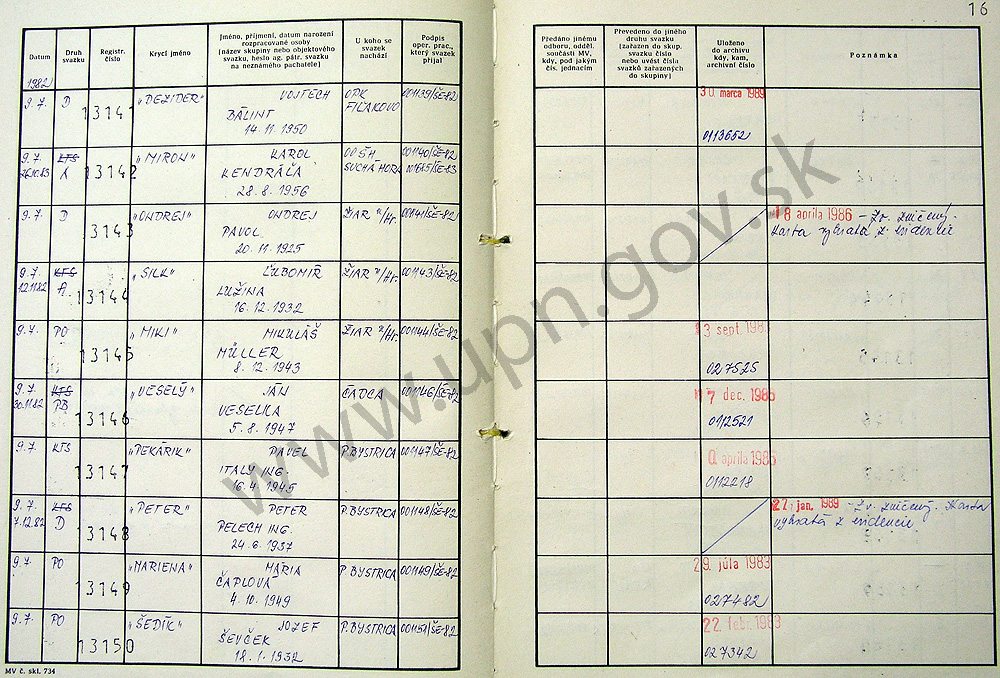 16
Datum
Druh svazku
Registr. číslo
Krycí jméno
Jméno, příjmení, datum narození rozpracované osoby (název skupiny nebo objektového svazku, heslo ag. pátr. svazku na neznámého pachatele)
U koho se svazek nachází
Podpis oper. prac., který svazek přijal
Předáno jinému odboru, odděl. součásti MV, kdy, pod jakým čís. jednacím
Převedeno do jiného druhu svazku (zařazen do skup. svazku číslo nebo uvést čísla svazků zařazených do skupiny)
Uloženo do archivu kdy, kam, archivní číslo
Poznámka
1982
9.7. D 13141 „DEZIDER" VOJTECH OPK 001139/ŠE-82 30. marca 1989
BÁLINT FIĽAKOVO
14.11.1950 0113652
9.7. KTS 13142 „MIRON" KAROL OO ŠH 001140/ŠE-82
26.10.83 A KENDRÁĽA SUCHÁ HORA 001685/ŠE-83
28.8.1956
9.7. D 13143 „ONDREJ" ONDREJ ŽIAR n/Hr. 001141/ŠE-82 18 apríla 1986 - Zv. zničený.
PAVOL Karta vybratá z evidencie
20.11.1925
9.7. KTS 13144 „SILK" ĽUBOMÍR ŽIAR n/Hr. 001143/ŠE-82
12.11.82 A LUŽINA
16.12.1932
9.7. PO 13145 „MIKI" MIKULÁŠ ŽIAR n/Hr. 001144/ŠE-82 3 sept.
MÜLLER
8.12.1943 027525
9.7. KTS 13146 „VESELÝ" JÁN ČADCA 001146/ŠE-82 7 dec.
30.11.82 PB VESELKA
5.8.1947 0112521
9.7. KTS 13147 „PEKÁRIK" PAVEL P. BYSTRICA 001147/ŠE-82 apríla
ITALY ING.
16.4.1945 0112218
9.7. KTS 13148 „PETER" PETER P. BYSTRICA 001148/ŠE-82 27. jan. 1989 - Zv. zničený. Karta
7.12.82 D PELECH ING. vybratá z evidencie
24.6.1937
9.7. PO 13149 „MARIENA" MÁRIA P. BYSTRICA 001149/ŠE-82 29. júla 1983
ČAPLOVÁ
4.10.1949 027482
9.7. PO 13150 „ŠEDÍK" JOZEF P. BYSTRICA 001151/ŠE-82 22 feb. 1983
ŠEVČEK
18.1.1932 027342
MV č. skl. 734
www.upn.gov.sk